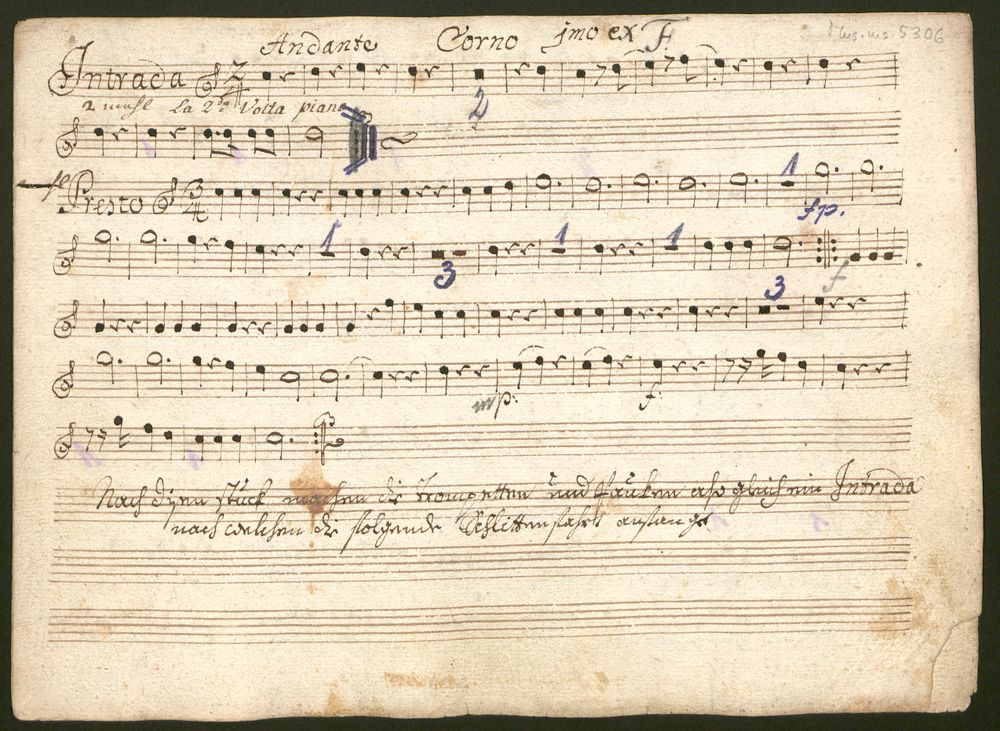 Andante Corno jmo ex F. Mus. ms. 5306
Intrada 2/4
2 mahl La 2da Volta piano 2
Presto 3/4 1
fp.
1 3 1 1 f
3
mp: f:
Nach disen stuck machen die Trompetten und Paucken also gleich ein Intrada
nach welchen die folgende Schlittenfahrt anfangt